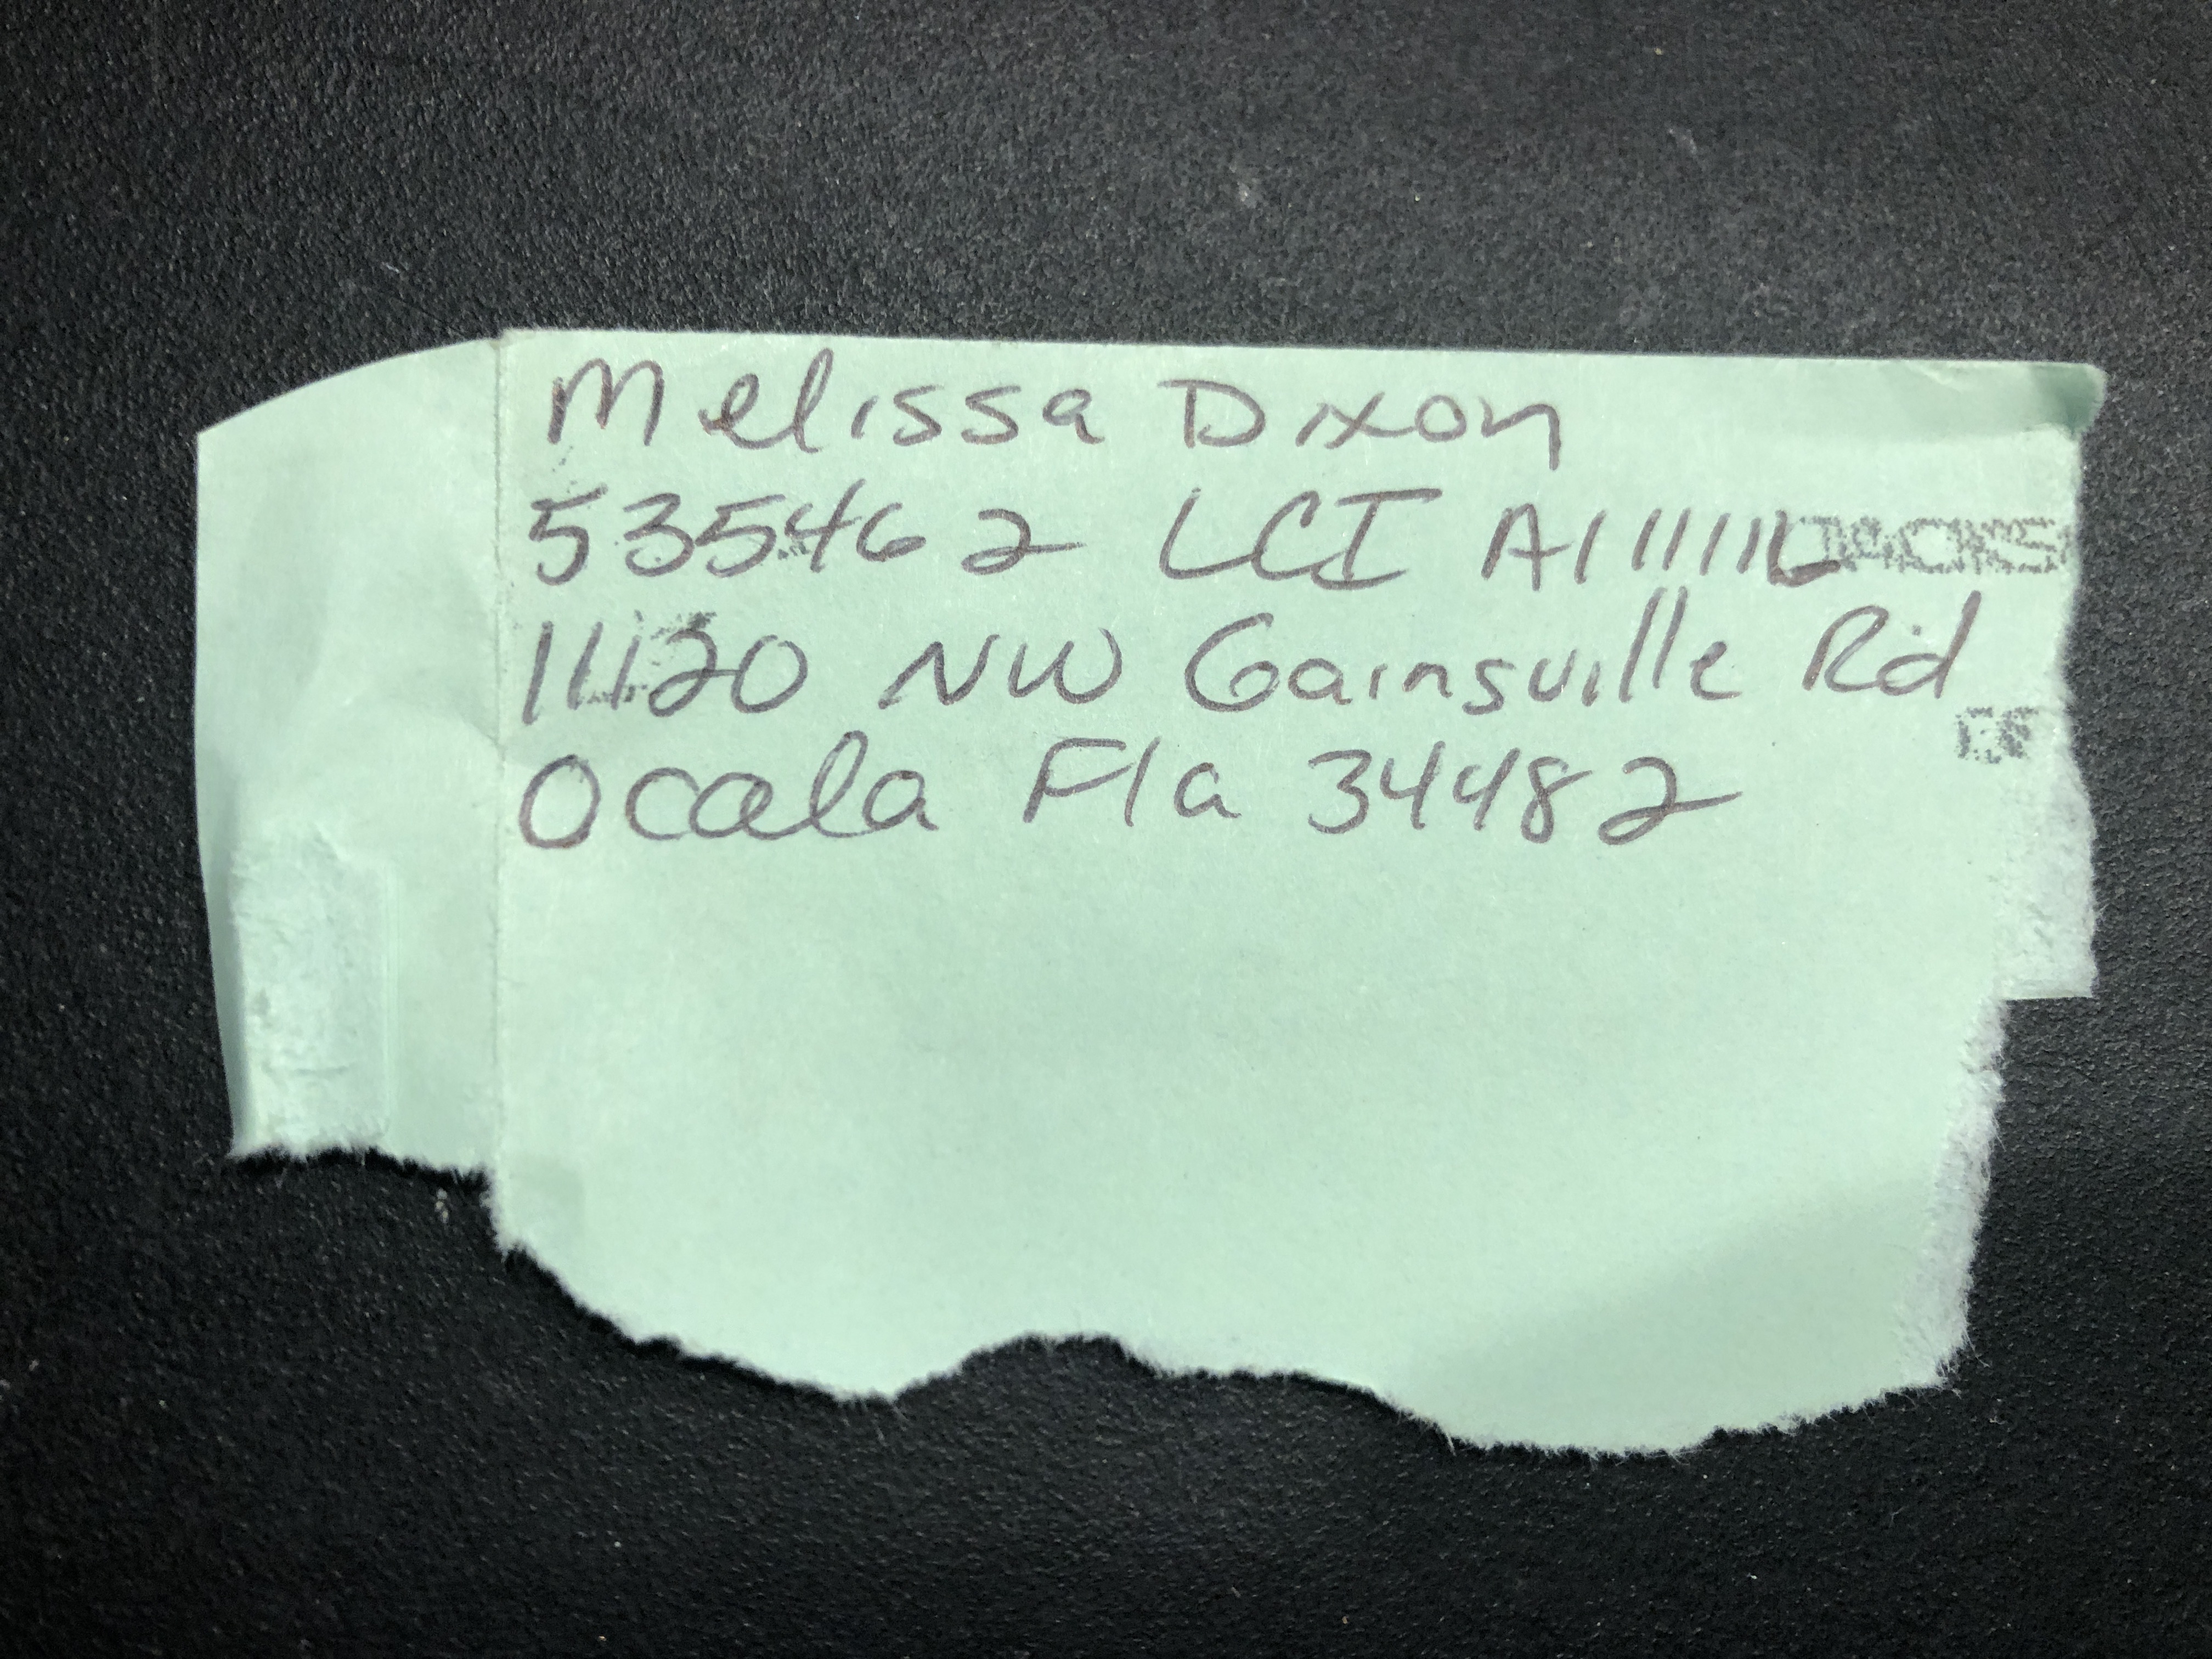 Melissa Dixon
535462 LCI A111111L JACKS
11120 NW Gainsville Rd
Ocala Fla 34482